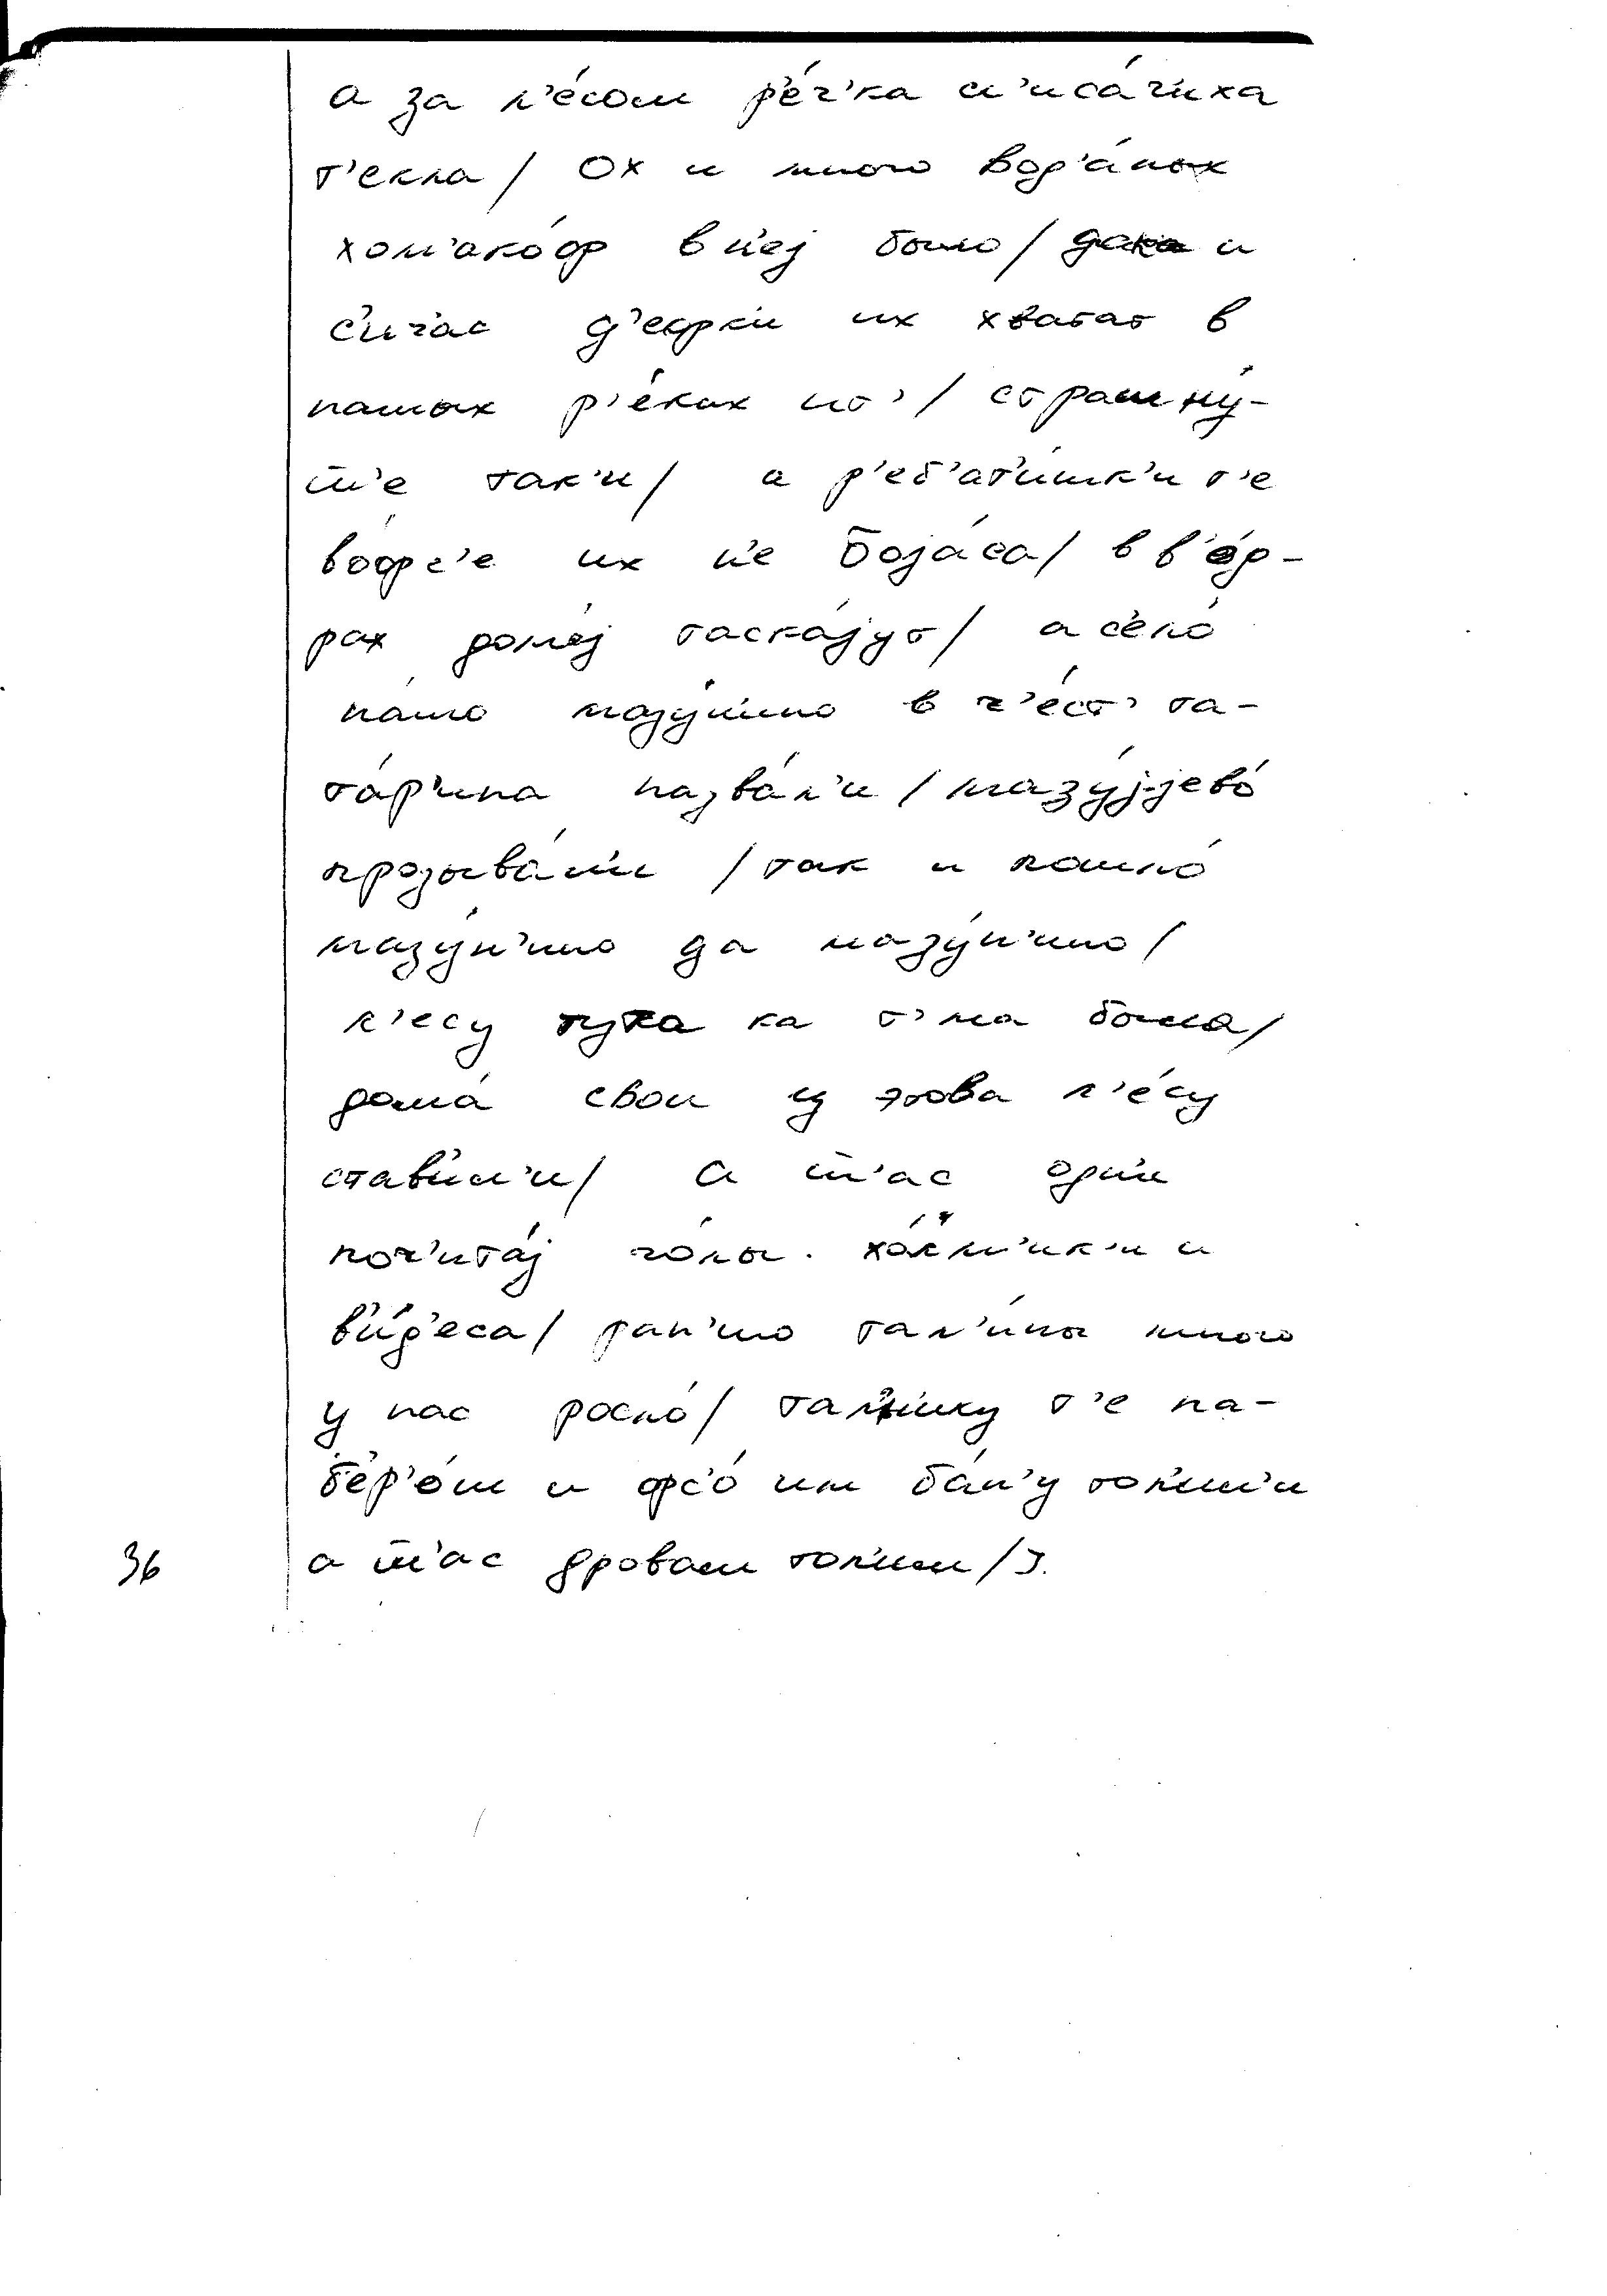 а за л'е́сом р'е́ч'ка с'иса́ч'иха
т'екла / Ох и много вод'а́ных
хом'ако́ф в н'еј было / дака и
с'ич'ас д'ефк'и их хватат в
нашых р'е́ках ит' / страшну́-
ш'е так'и / а р'еб'ат'и́шк'и т'е
во́фс'е их н'е боја́са / в в'о́д-
рах домо́ј таска́јут / а с'ело́
на́шо мазу́н'ино в ч'ест' та-
та́р'ина назва́л'и / мазу́ј јево́
прозыва́л'и / так и пошло́
мазу́н'ино да мазу́н'ино /
л'есу тука ка т'ма была /
дома́ свои из этова л'е́су
став'ил'и / а ш'ас одн'и
поч'ита́ј го́лы хо́лм'ик'и и
в'и́д'еса / ран'шо тал'и́ны много
у нас росло́ / тал'и́нку т'е на-
б'ер'о́ш и фс'о им ба́н'у топ'ил'и
а ш'ас дровам топ'им / ].
36